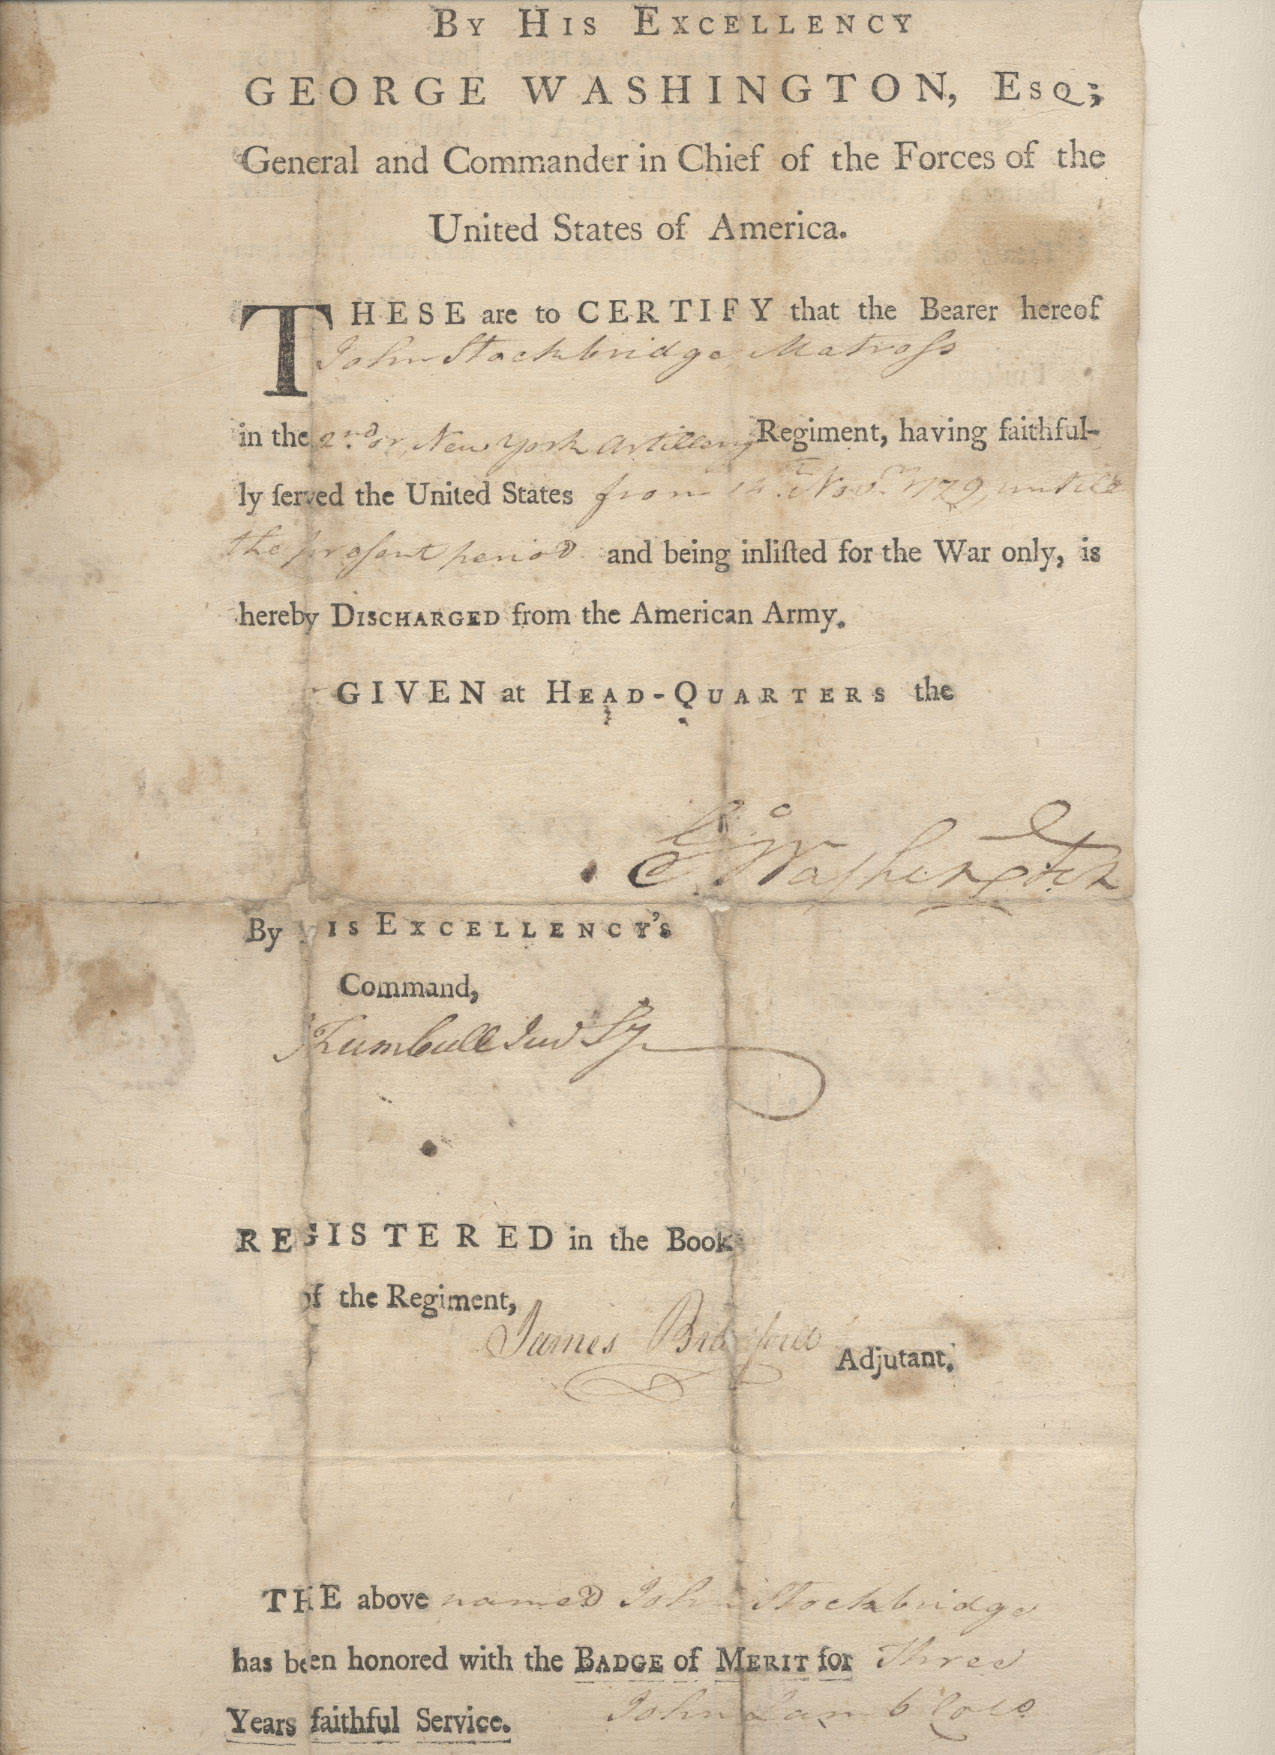 BY HIS EXCELLENCY
GEORGE WASHINGTON, ESQ;
General and Commander in Chief of the Forces of the
United States of America.
THESE are to CERTIFY that the Bearer hereof
John Stockbridge Matroſs
in the 2nd or New York Artillery Regiment, having faithful-
ly ſerved the United States from 14th Novr. 1779, untill
the preſent period and being inliſted for the War only, is
hereby DISCHARGED from the American Army.
GIVEN at HEAD-QUARTERS the
Go Washington
By IS EXCELLENCY'S
Command,
Trumbull Jun Sy
REGISTERED in the Book
of the Regiment,
James Adjutant.
THE above named John Stockbridge
has been honored with the BADGE of MERIT for Three
Years faithful Service. John Lamb Colo